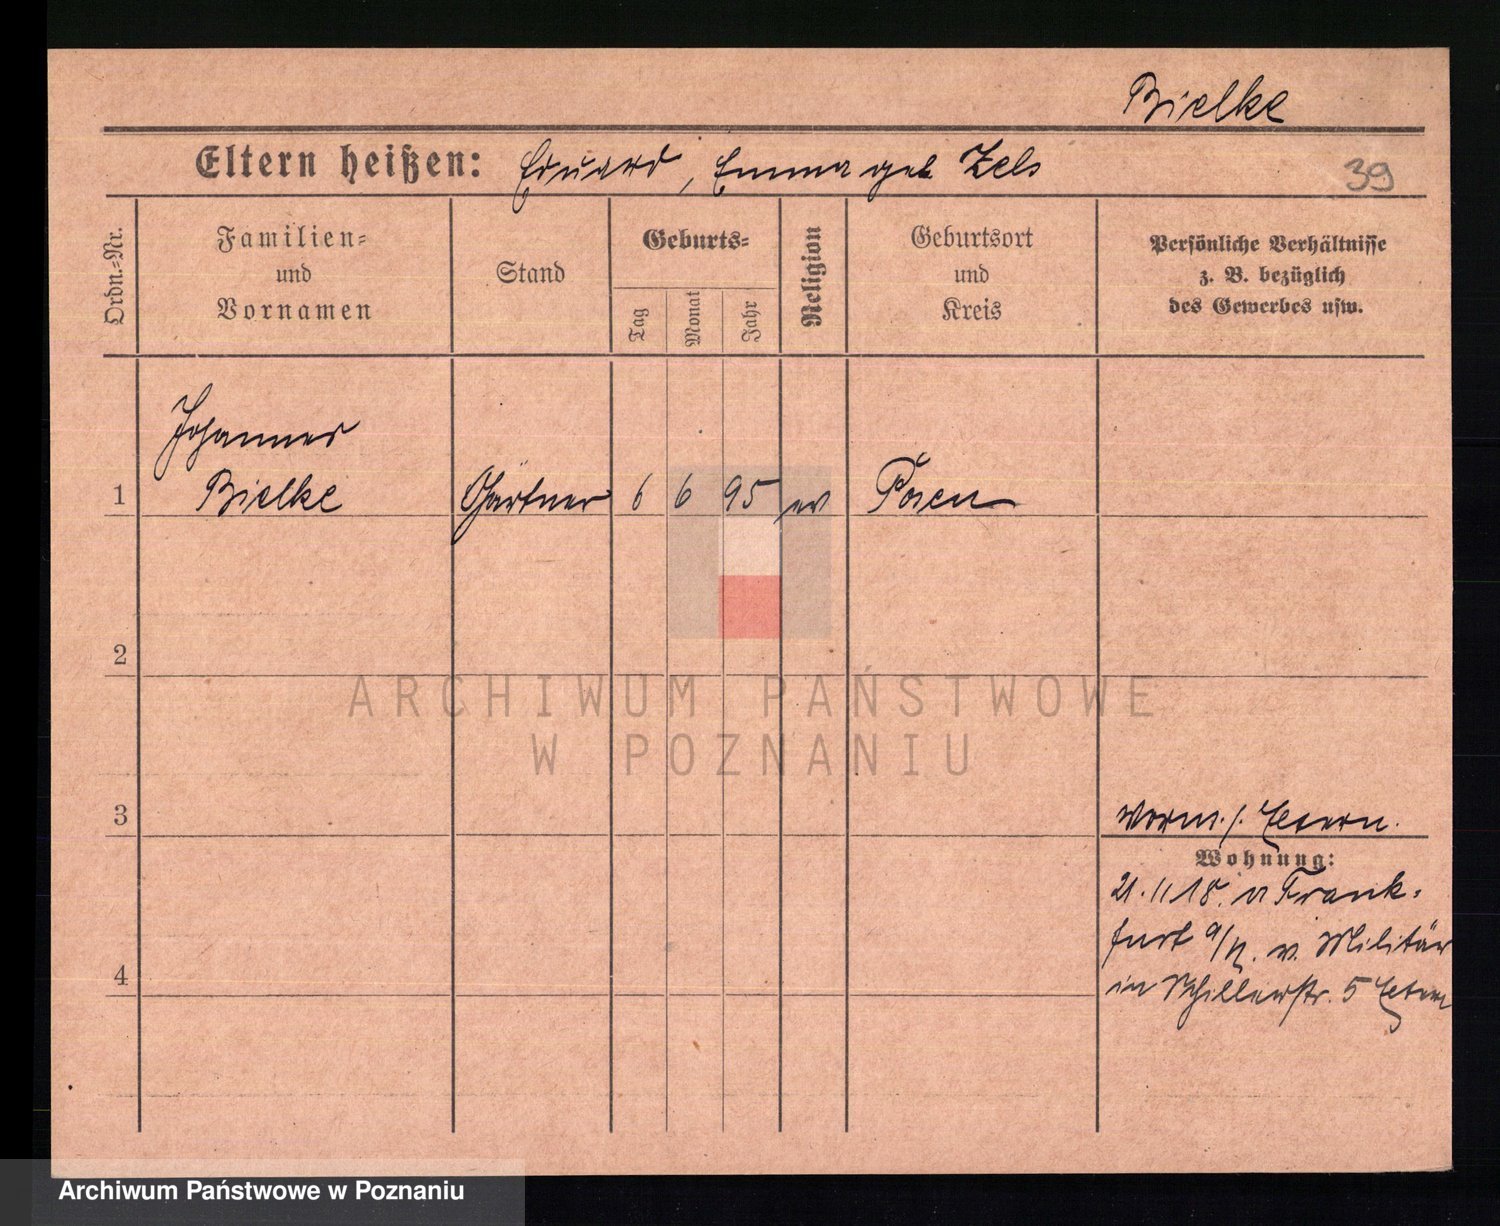 Bielke
Eltern heißen: Eduard, Emma geb Zels
39
Ordn.=Nr.
Familien=
und
Vornamen
Stand
Geburts=
Tag
Monat
Jahr
Religion
Geburtsort
und
Kreis
Persönliche Verhältnisse
z. B. bezüglich
des Gewerbes usw.
Johannes
1 Bielke Gärtner 6 6 95 ev Posen
2
ARCHIWUM PAŃSTWOWE
W POZNANIU
3
Eltern.
Wohnung:
21.11 18. v Frank=
furt a/O. v. Militär
in Schillerstr. 5 Eltern
4
Archiwum Państwowe w Poznaniu